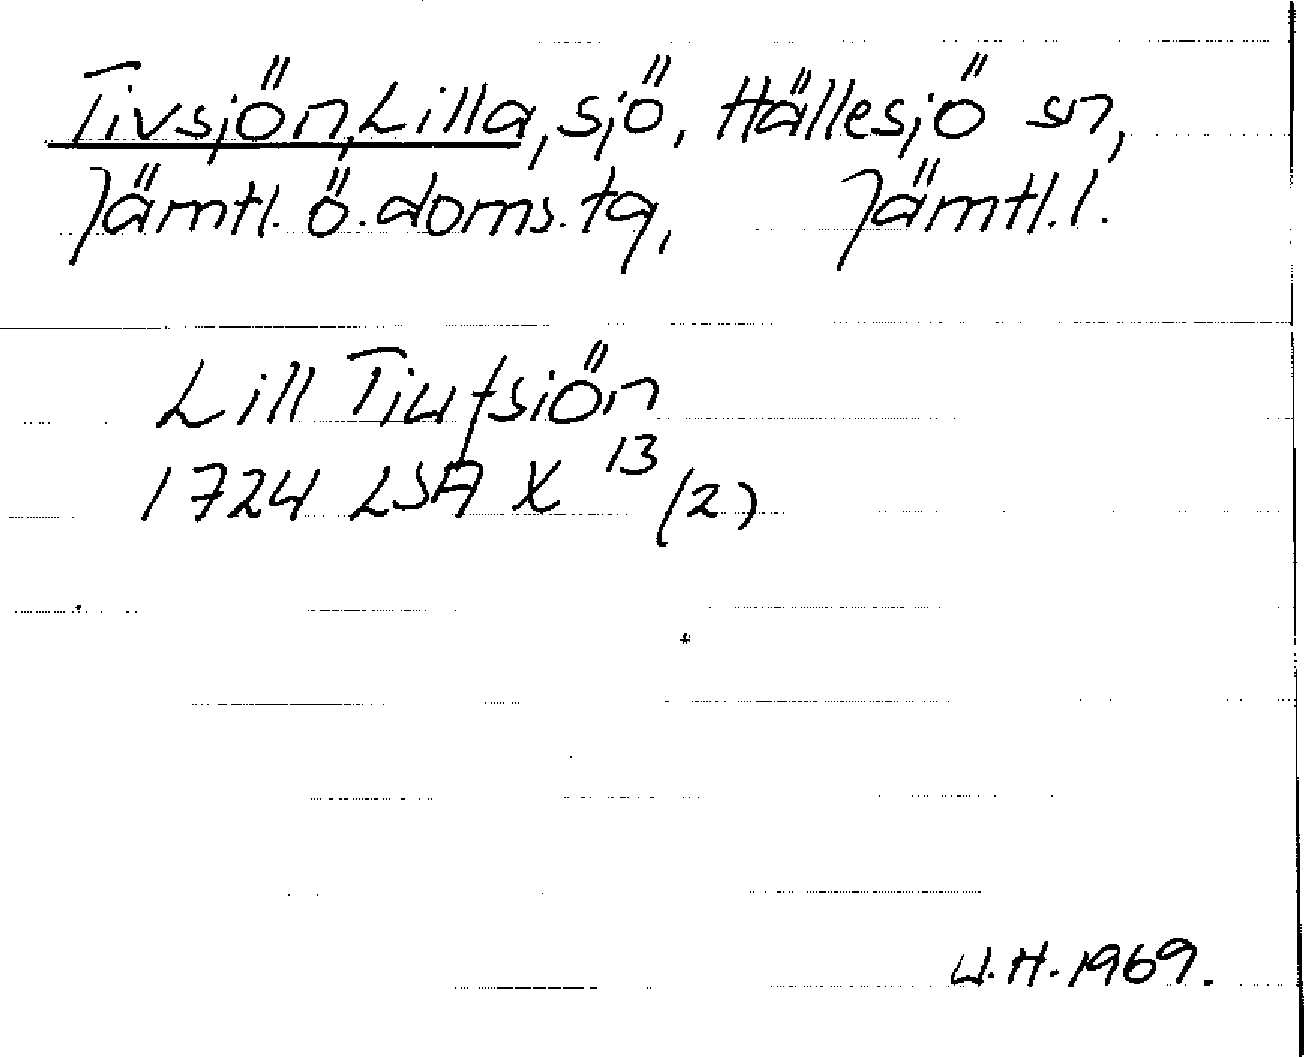 Tivsjön, Lilla, sjö, Hällesjö sn,
Jämtl. ö. doms. tg, Jämtl. l.
Lill Tiufsiön
1724 LSA X 13 (2)
U.H. 1969.